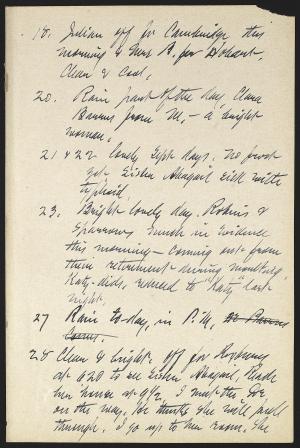 18. Julian off for Cambridge this
morning & Mrs B. for Hobart.
Clear & cool.
20. Rain part of the day, Clara
Barrus from M, — a bright
woman.
21 & 22 lovely Sept days. No frost
yet. Sister Abagail sick with
typhoid.
23. Bright lovely day. Robins &
sparrows much in evidence
this morning — coming out from
their retirement during moulting,
Katy-dids, reduced to "Katy" last
night.
27 Rain to-day, in P.M,
28 Clear & bright. off for Roxbury
at 820 to see Sister Abagail, Reach
her house at 9½. I meet the Dr
on the way. He thinks she will pull
through. I go up to her room. She